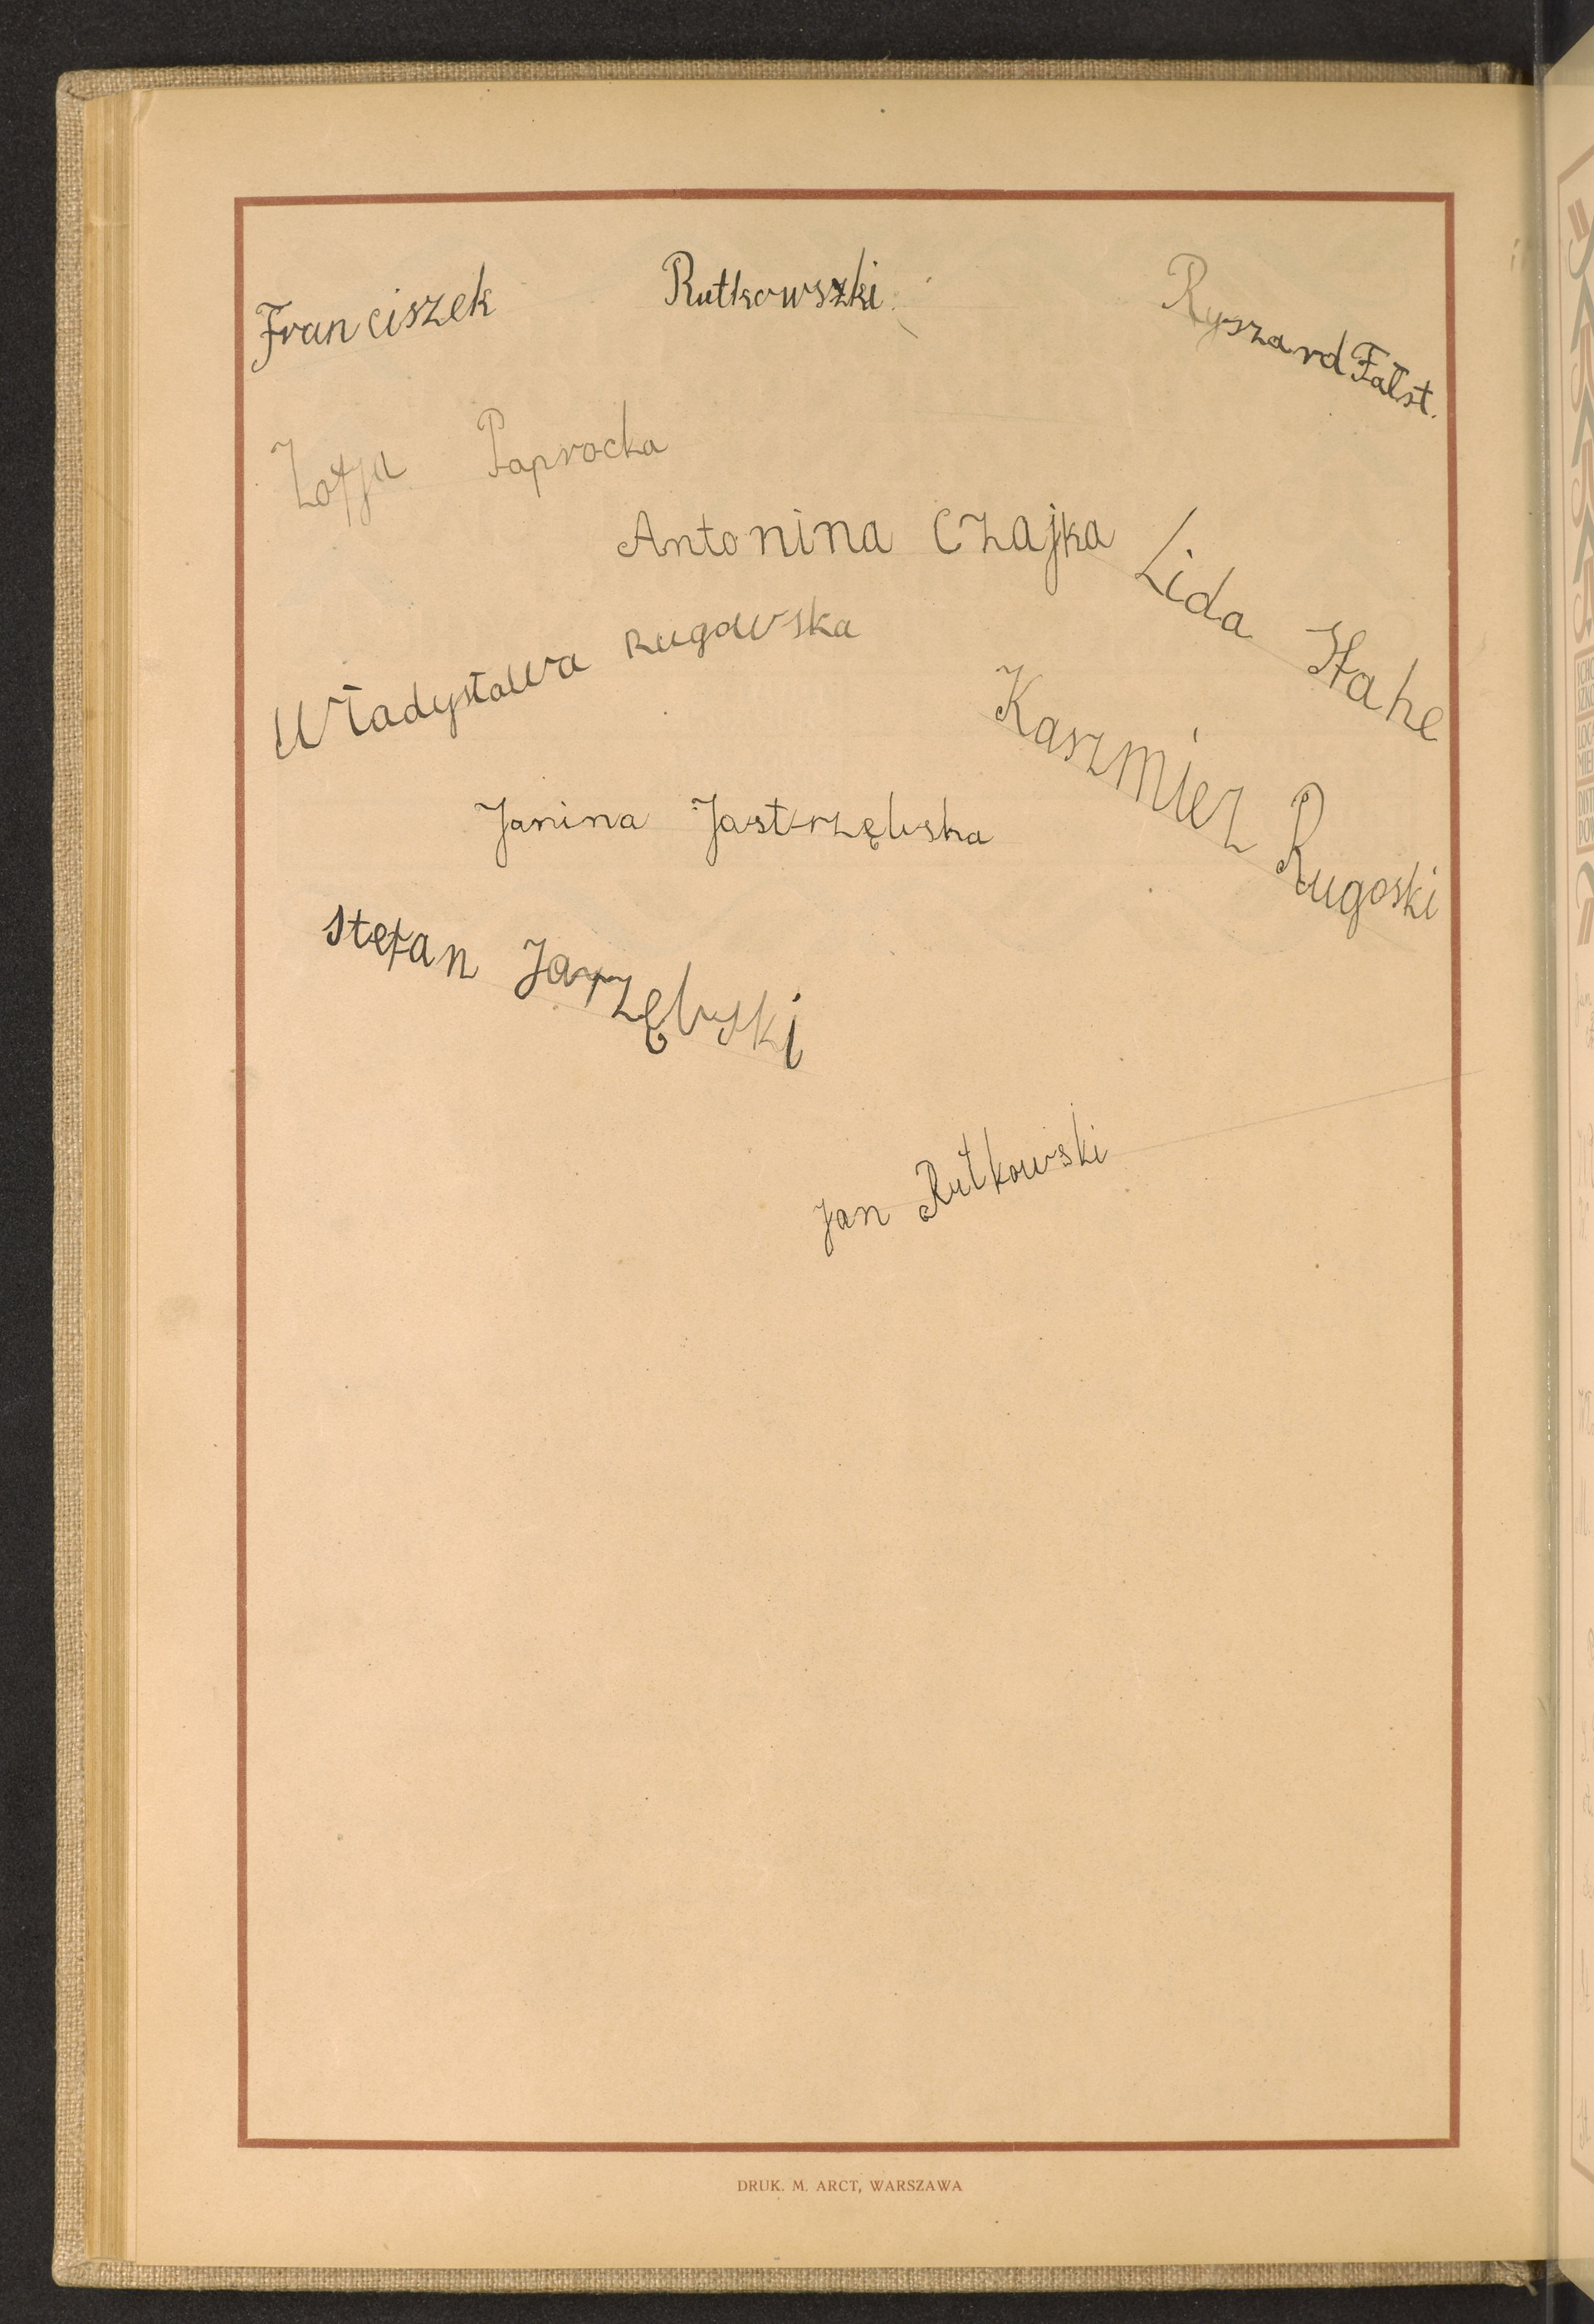 Franciszek Rutkowszki
Ryszard Fałst.
Zofja Paprocka
Antonina Czajka
Lida Hahe
Władysława Rugowska
Kaszmierz Rugoski
Janina Jastrzębska
Stefan Jarzębski
Jan Rutkowski
DRUK. M. ARCT, WARSZAWA